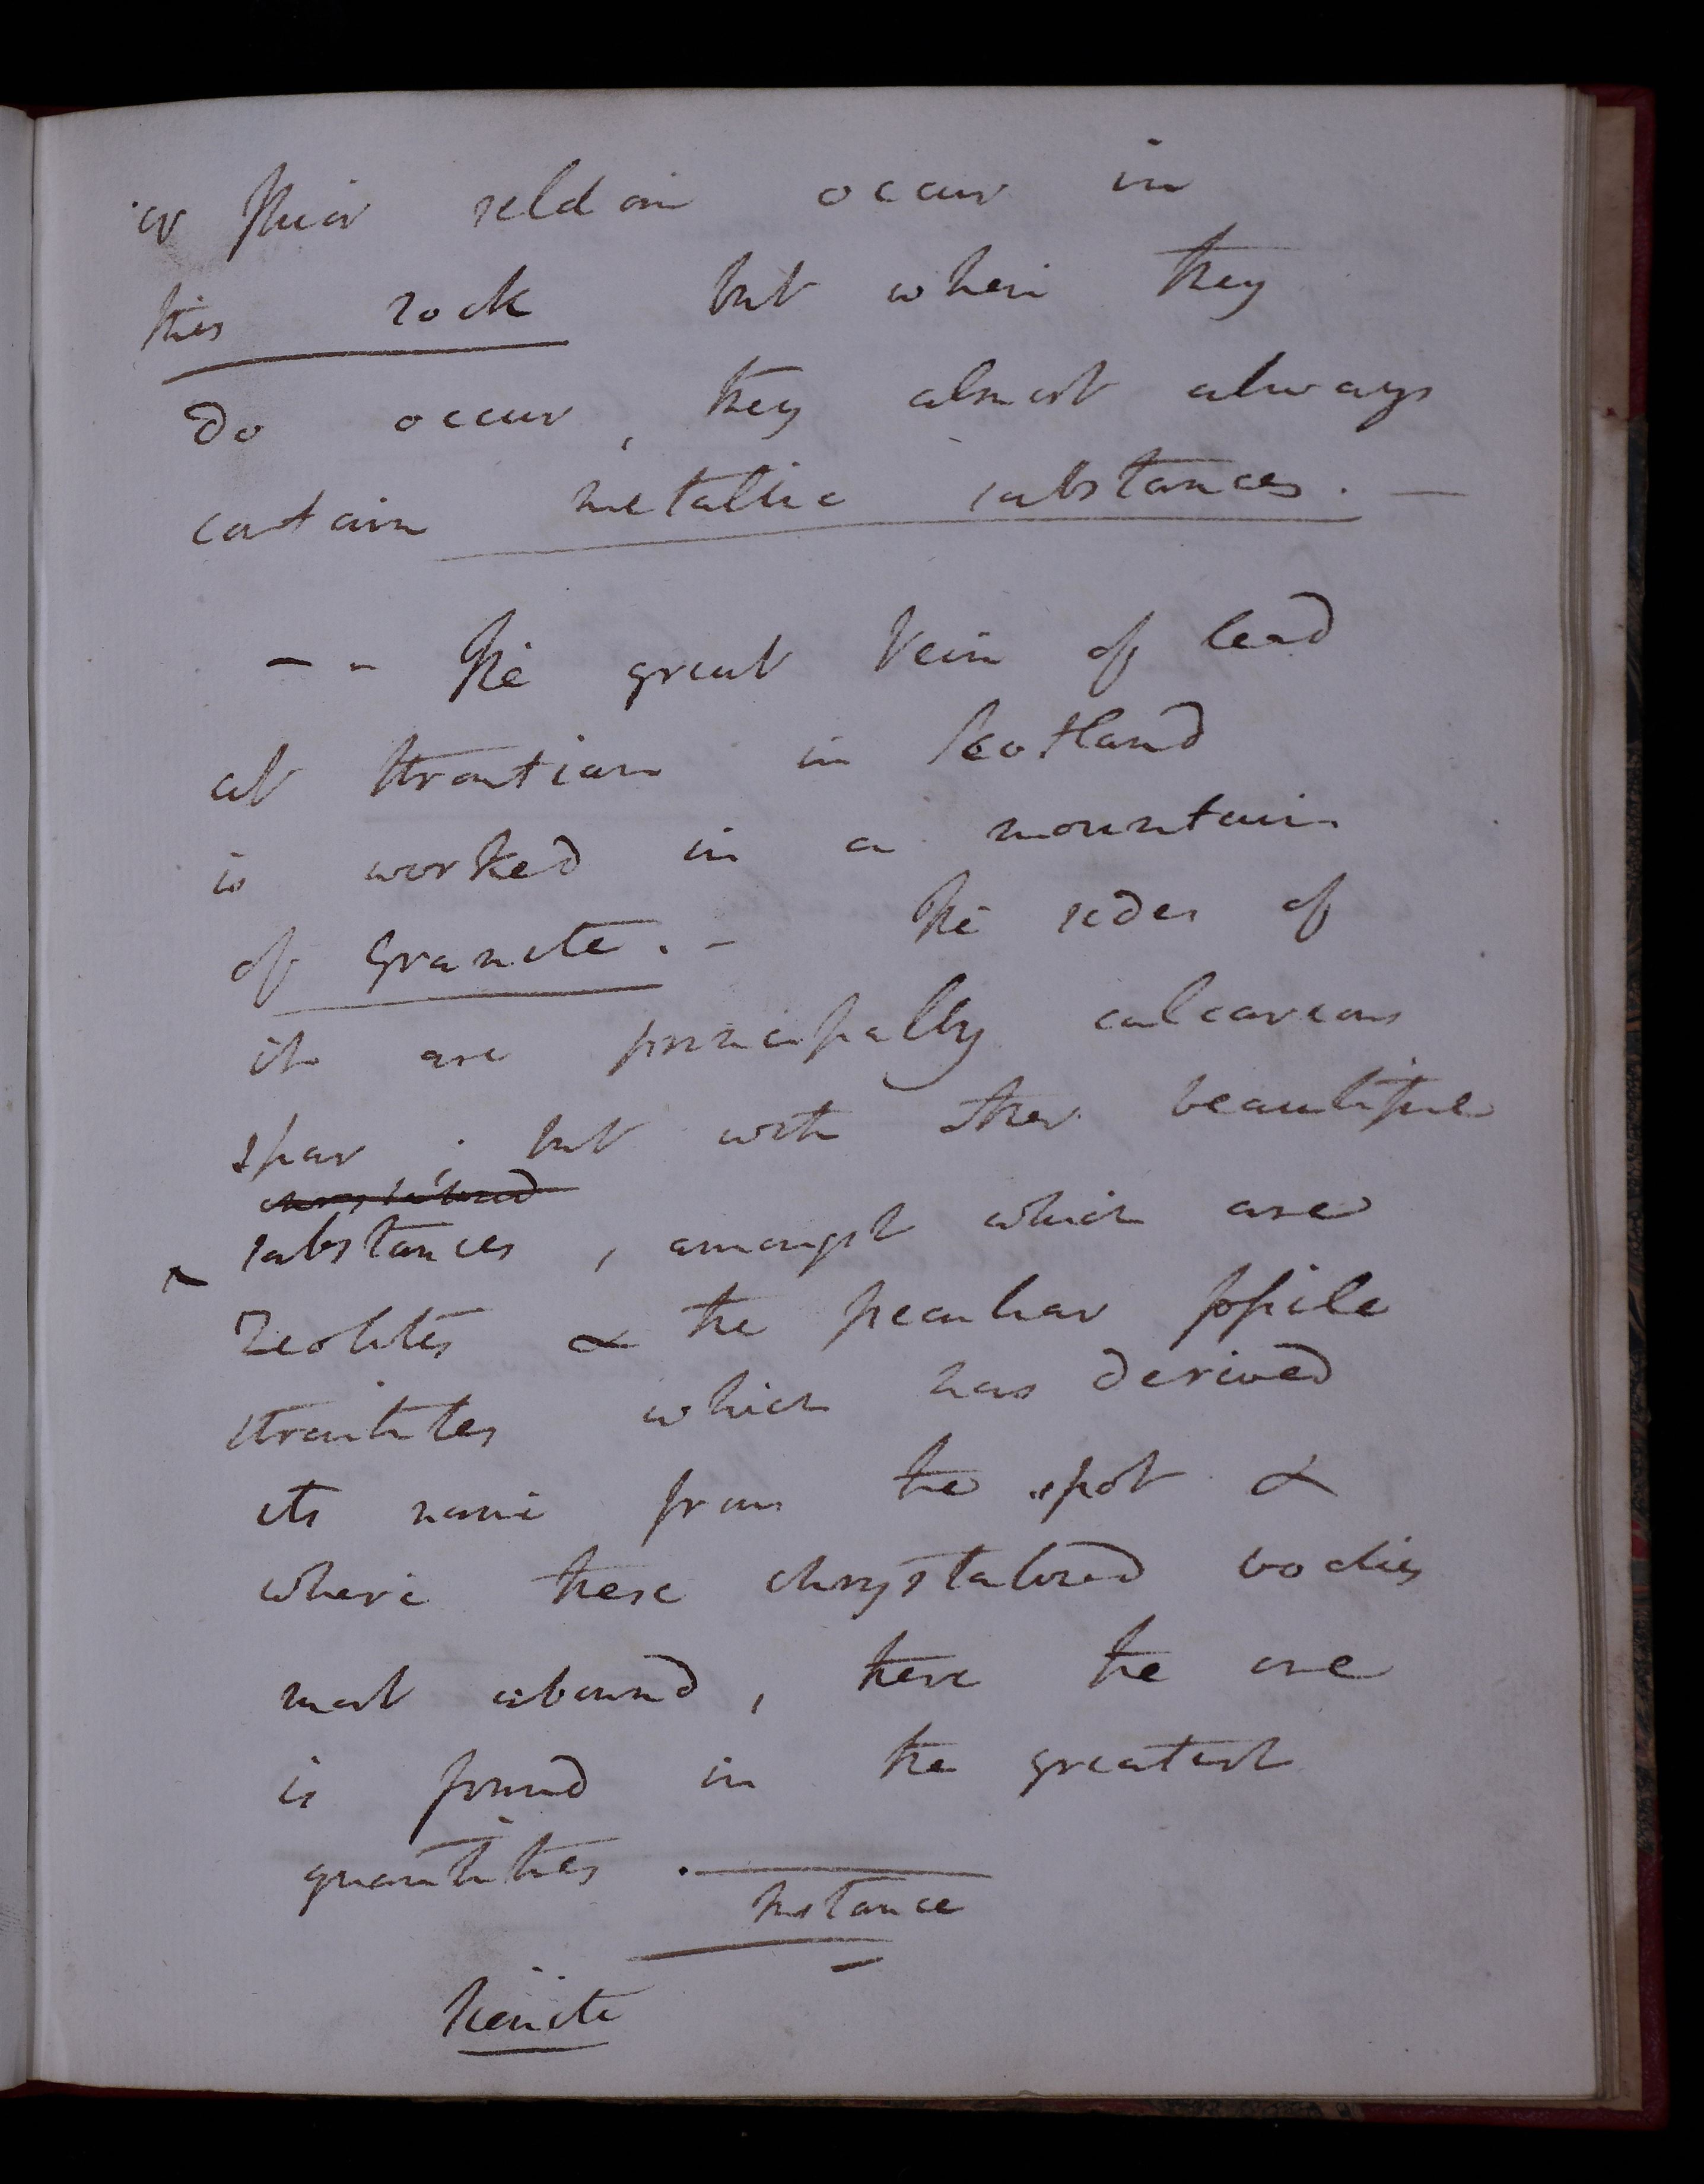 or Fluor seldom occur in
this rock but when they
do occur, they almost always
contain metallic substances. —
— - The great Vein of lead
at Strontian in Scotland
is worked in a mountain
of Granite. - The sides of
it are principally calcareous
spar; but with other beautiful
substances, amongst which are
Zeolites & the peculiar fossile
Strontites which has derived
its name from the spot &
where these chrystalized bodies
most abound, there the ore
is found in the greatest
quantities. —
Instance
Sienite